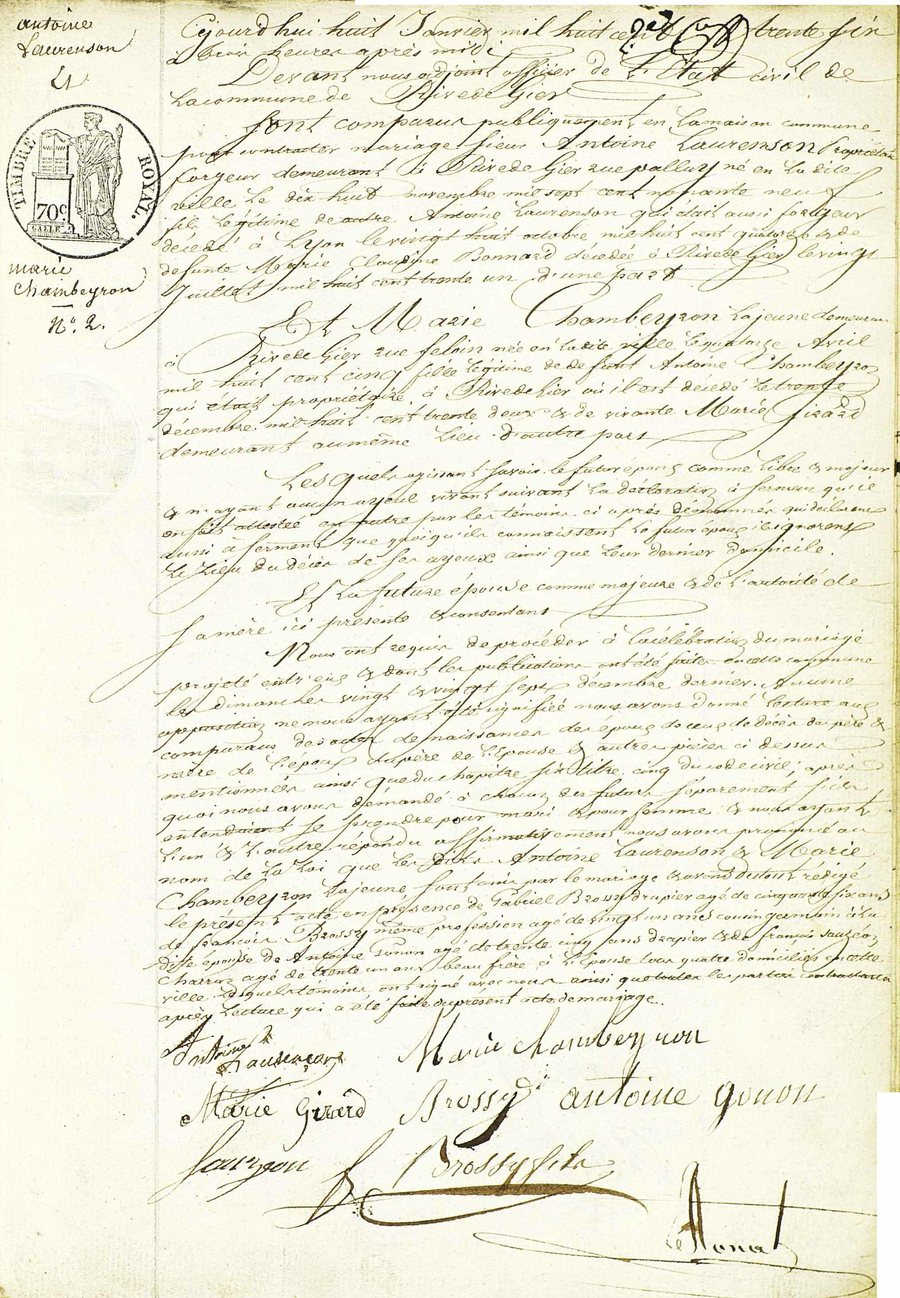 antoine
Laurenson
&
TIMBRE ROYAL
70c.
marie
Chambeyron
N.° 2.
Cejourd'hui huit Janvier mil huit cent trente six
à trois heures après midi
Devant nous adjoint officier de L'Etat civil de
La commune de Rive de Gier
Sont comparus publiquement en La maison commune
pour contracter mariage sieur Antoine Laurenson Propriétaire
forgeur demeurant à Rive de Gier rue palluy né en La dite
ville le dix huit novembre mil sept cent nonante neuf
fils Légitime de autre Antoine Laurenson qui était aussi forgeur
décédé à Lyon le vingt huit octobre mil huit cent quatorze & de
defunte Marie Claudine Bonnard décédée à Rive de Gier le vingt
Juillet mil huit cent trente un d'une part
Et Marie Chambeyron La jeune demeurant
à Rive de Gier rue feloin née en La dite ville Le quatorze Avril
mil huit cent cinq fille légitime de defunt Antoine Chambeyron
qui était propriétaire à Rive de Gier où il est décédé Le trente
décembre mil huit cent trente deux & de vivante Marie Girard
demeurant au même Lieu d'autre part
Lesquels agissant savoir le futur époux comme Libre & majeur
& n'ayant aucun ayeul vivant suivant La déclaration à serment qu'il
en fait attestée en outre par les témoins ci après dénommés qui déclarent
aussi à serment que quoiqu'ils connaissent Le futur époux ils ignorent
Le Lieu du décès de ses ayeux ainsi que Leur dernier domicile.
Et La future épouse comme majeure & de L'autorité de
sa mère ici présente & consentant
Nous ont requis de procéder à La célébration du mariage
projeté entr'eux & dont les publications ont été faites en cette commune
les dimanches vingt & vingt sept décembre dernier. Aucune
opposition ne nous ayant été signifiée nous avons donné Lecture aux
comparus des actes de naissances des époux de ceux de décès des père &
mère de L'époux du père de L'Epouse & autres pièces ci dessus
mentionnées ainsi que du chapitre six titre cinq du code civil, après
quoi nous avons demandé à chacun des futurs séparément s'ils
entendaient se prendre pour mari & pour femme & nous ayant
L'un & L'autre répondu affirmativement nous avons prononcé au
nom de La Loi que Les dits Antoine Laurenson & Marie
Chambeyron La jeune sont unis par le mariage & avons du tout rédigé
le présent acte en présence de Gabriel Brossy drapier agé de cinquante six ans
de francois Brossy même profession agé de vingt un ans cousin germain à La
dite épouse de Antoine Gonon agé de trente cinq ans drapier & de françois Sauzeon
Charron agé de trente un ans beau frère à L'Epouse tous quatre domiciliés en cette
ville Lesquels témoins ont signé avec nous ainsi que toutes les parties contractantes
après Lecture qui a été faite du présent acte de mariage.
Antoine Marie Chambeyron
Laurençon
Marie Girard Brossy antoine gonon
Sauzeon Brossy fils